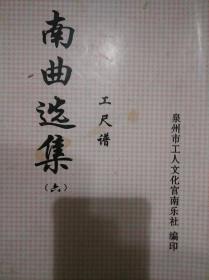 南曲选集
（六）
工尺谱
泉州市工人文化宫南乐社 编印